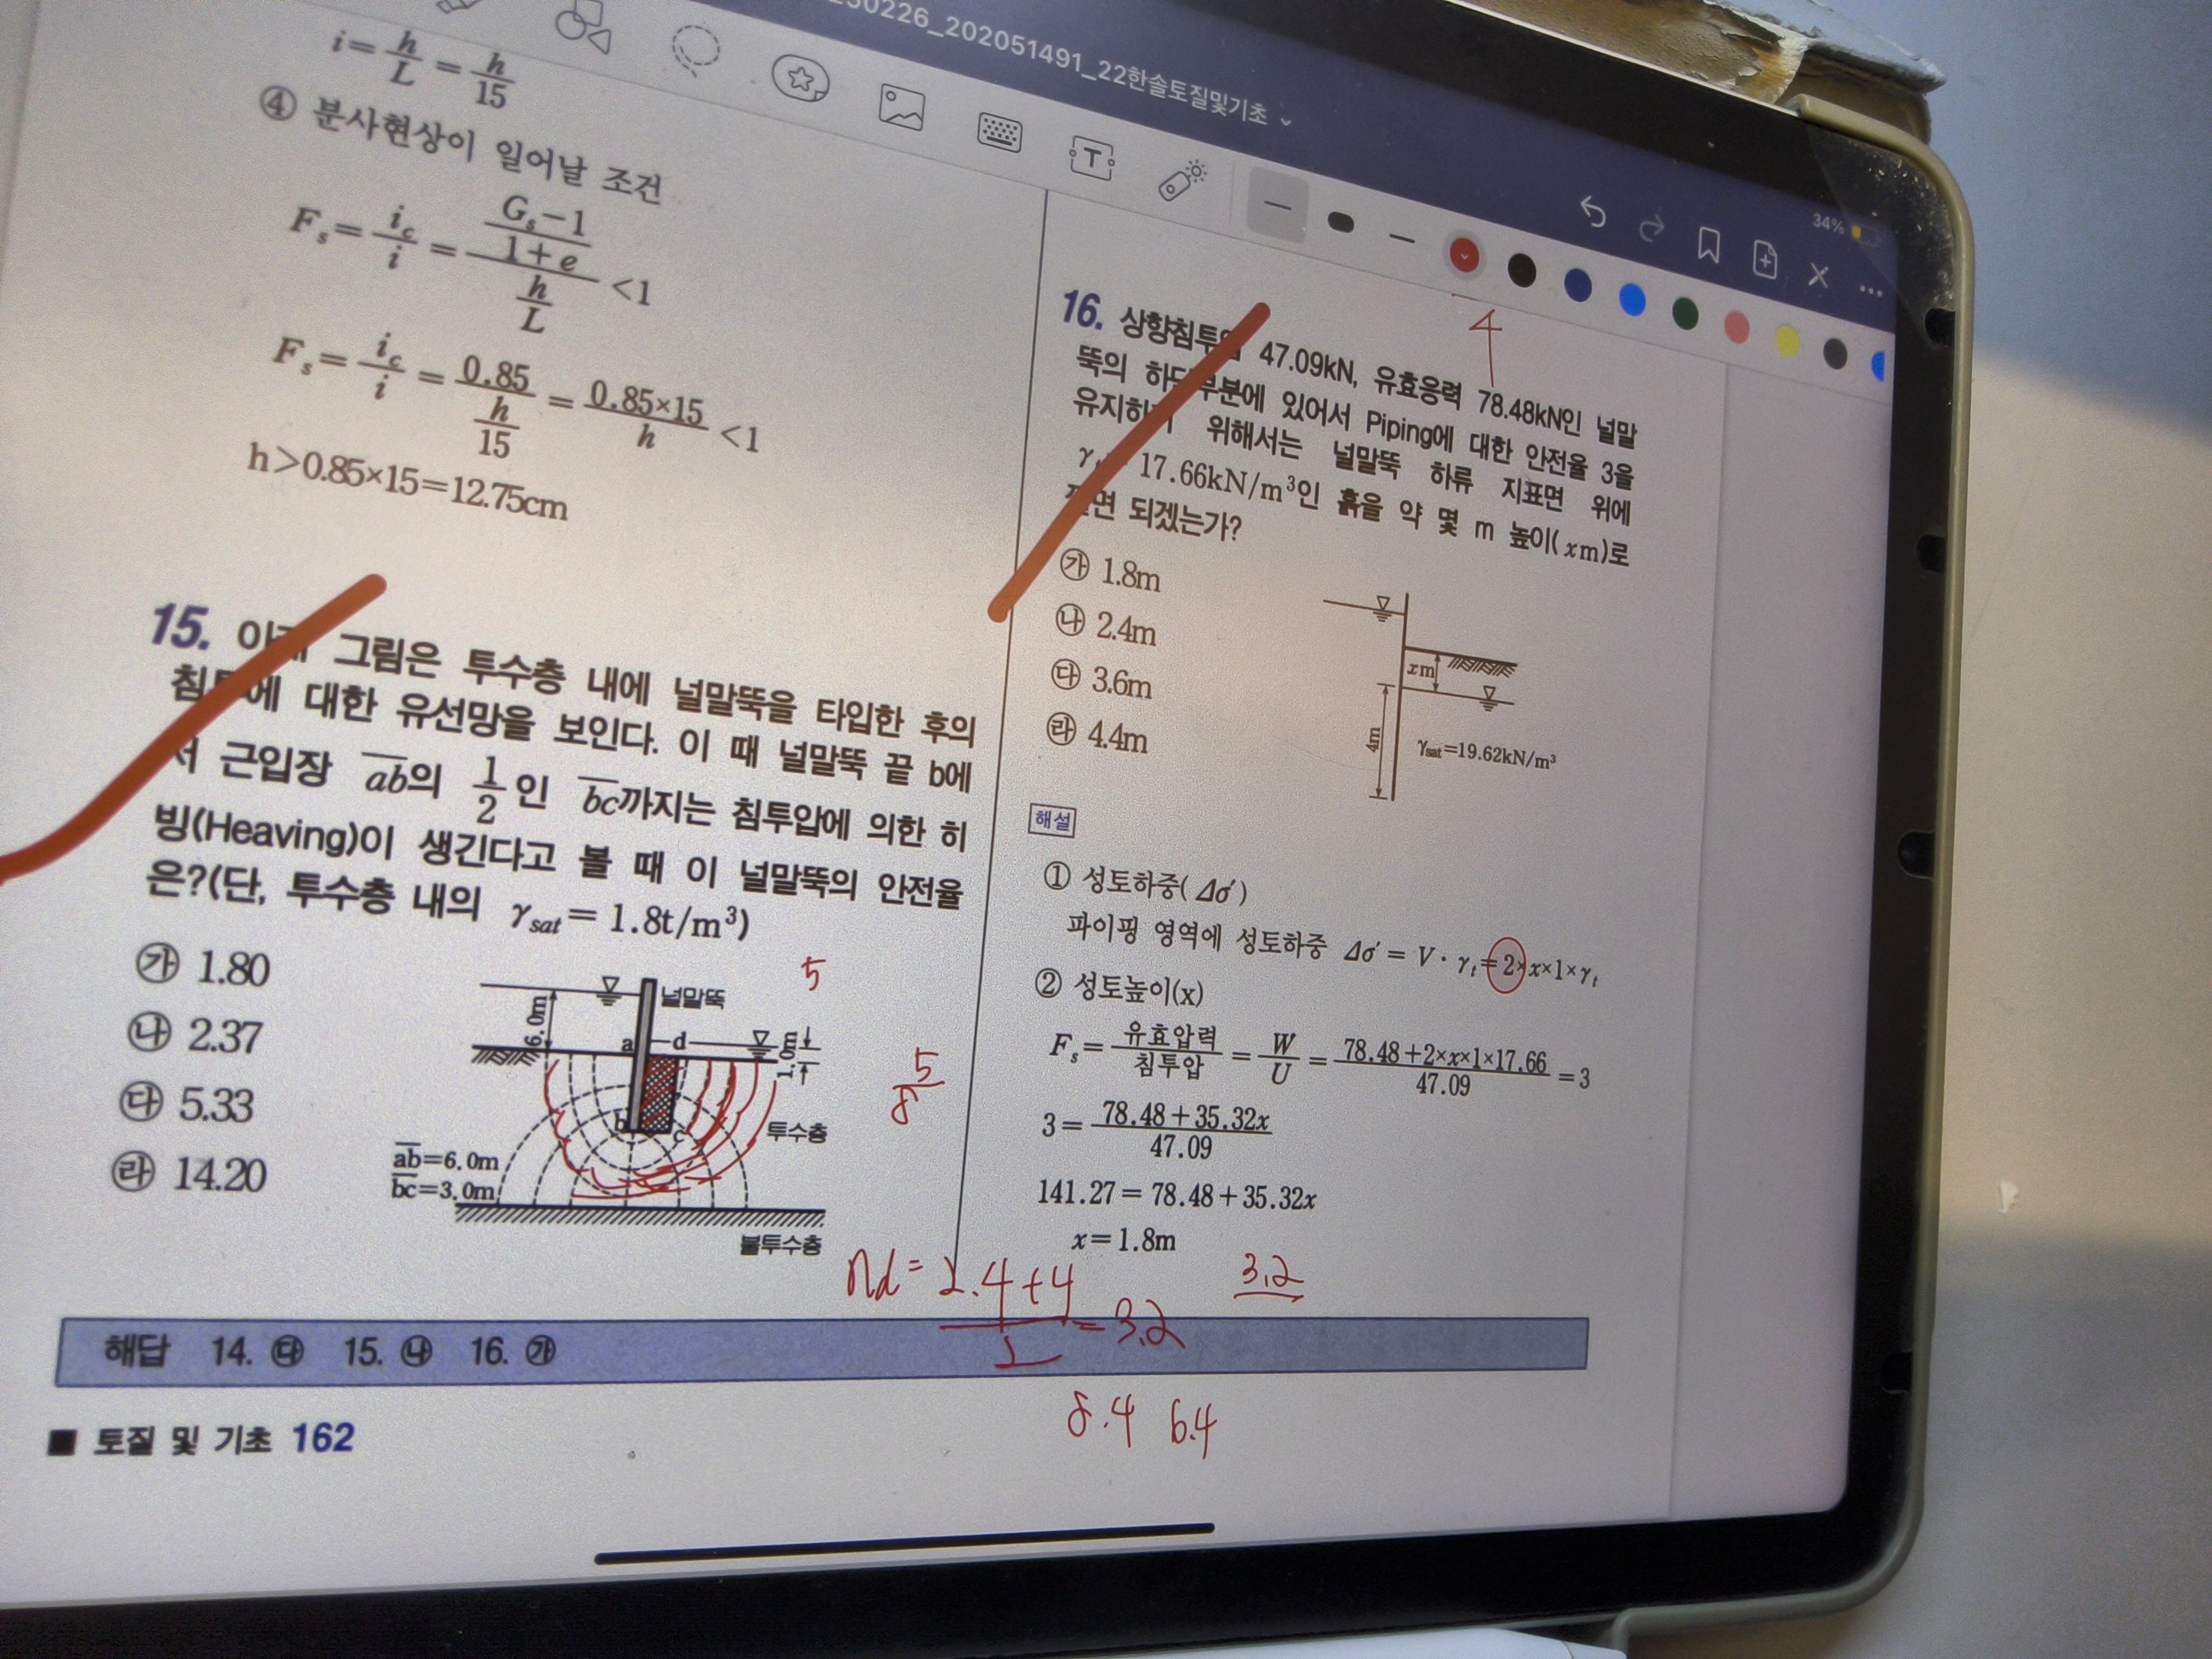 50226_202051491_22한솔토질및기초
34%
i = h/L = h/15
④ 분사현상이 일어날 조건
F_s = i_c/i = ((G_s-1)/(1+e))/(h/L) <1
F_s = i_c/i = 0.85/(h/15) = 0.85×15/h <1
h>0.85×15=12.75cm
15. 아래 그림은 투수층 내에 널말뚝을 타입한 후의
침투에 대한 유선망을 보인다. 이 때 널말뚝 끝 b에
서 근입장 ab의 1/2인 bc까지는 침투압에 의한 히
빙(Heaving)이 생긴다고 볼 때 이 널말뚝의 안전율
은?(단, 투수층 내의 γ_sat = 1.8t/m³)
㉮ 1.80
㉯ 2.37
㉰ 5.33
㉱ 14.20
널말뚝
6.0m
a
d
1.0m
b
c
투수층
ab=6.0m
bc=3.0m
불투수층
5
5/8
4
16. 상향침투압 47.09kN, 유효응력 78.48kN인 널말
뚝의 하단부분에 있어서 Piping에 대한 안전율 3을
유지하기 위해서는 널말뚝 하류 지표면 위에
γ_t= 17.66kN/m³인 흙을 약 몇 m 높이(xm)로
면 되겠는가?
㉮ 1.8m
㉯ 2.4m
㉰ 3.6m
㉱ 4.4m
xm
4m
γ_sat=19.62kN/m³
해설
① 성토하중(Δσ′)
파이핑 영역에 성토하중 Δσ′ = V · γ_t = 2×x×1×γ_t
② 성토높이(x)
F_s = 유효압력/침투압 = W/U = (78.48+2×x×1×17.66)/47.09 = 3
3 = (78.48+35.32x)/47.09
141.27 = 78.48+35.32x
x = 1.8m
3.2
nd = 2.4+4 = 3.2
8.4 6.4
해답 14. ㉰ 15. ㉯ 16. ㉮
■ 토질 및 기초 162